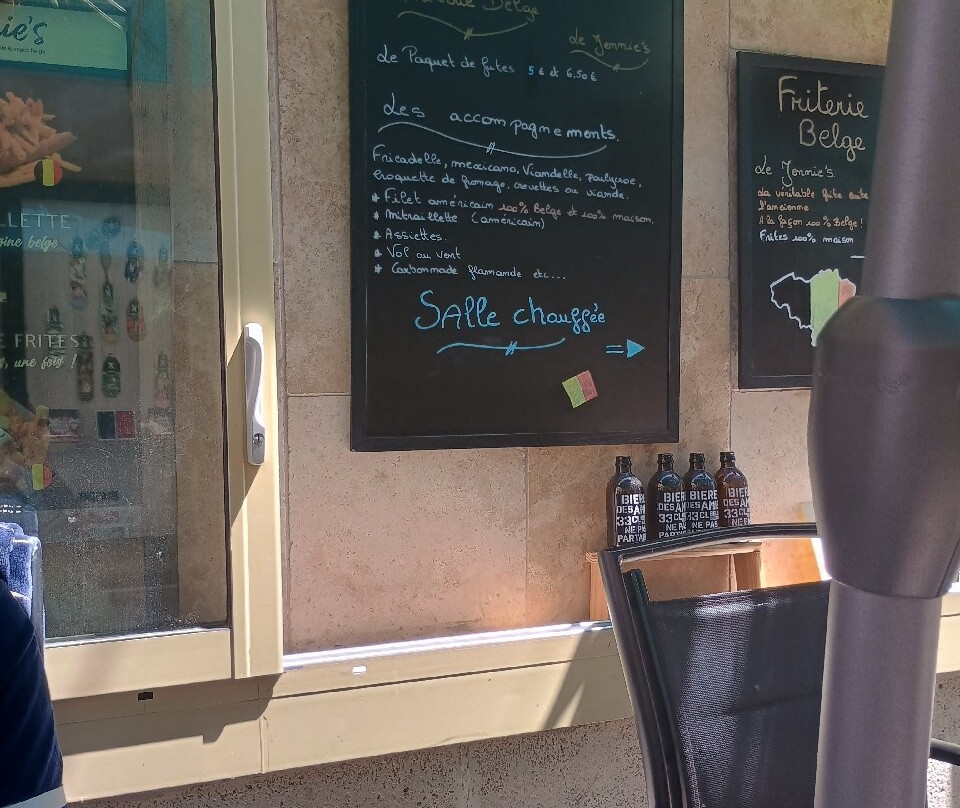 ie's
Belge
Le Jennie's
Le Paquet de frites 5 € et 6,50 €
Les accompagnements.
Fricadelle, mexicano, Viandelle, poulycroc,
croquette de fromage, crevettes ou viande.
* Filet américain 100% Belge et 100% maison.
* Mitraillette (américain)
* Assiettes.
* Vol au vent
* Carbonnade flamande etc...
Salle chauffée
Friterie
Belge
Le Jennie's
La véritable frite cuite
l'ancienne
A la façon 100% Belge !
Frites 100% maison
LLETTE
gine belge
E FRITES
s, une fois !
BIERE
DES AMIS
33CL
NE PAS
PARTA
BIER
DES AM
33CL
NE PA
PARTA
BIERE
DES AMI
33CL
NE PAS
PARTA
BIERE
DES AMI
33CL
NE PAS
PARTA